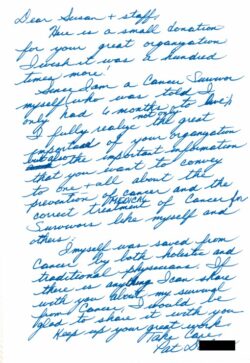 Dear Susan + staff,
Here is a small donation
for your great organyation
I wish it was a hundred
times more!
Since I am a Cancer Survivor
myself who was told I
only had 6 months to live,
I fully realize not only the great
important of your organyation
but also the important information
that you want to convey
to one + all about the
prevention of cancer and the
correct treatment of Cancer for
Survivors like myself and
others.
I myself was saved from
Cancer by both holistic and
traditional physicians. If
there is anything I can share
with you about my survival
from Cancer, I would be
glad to share it with you
Keep up your great work
Take Care
Pat